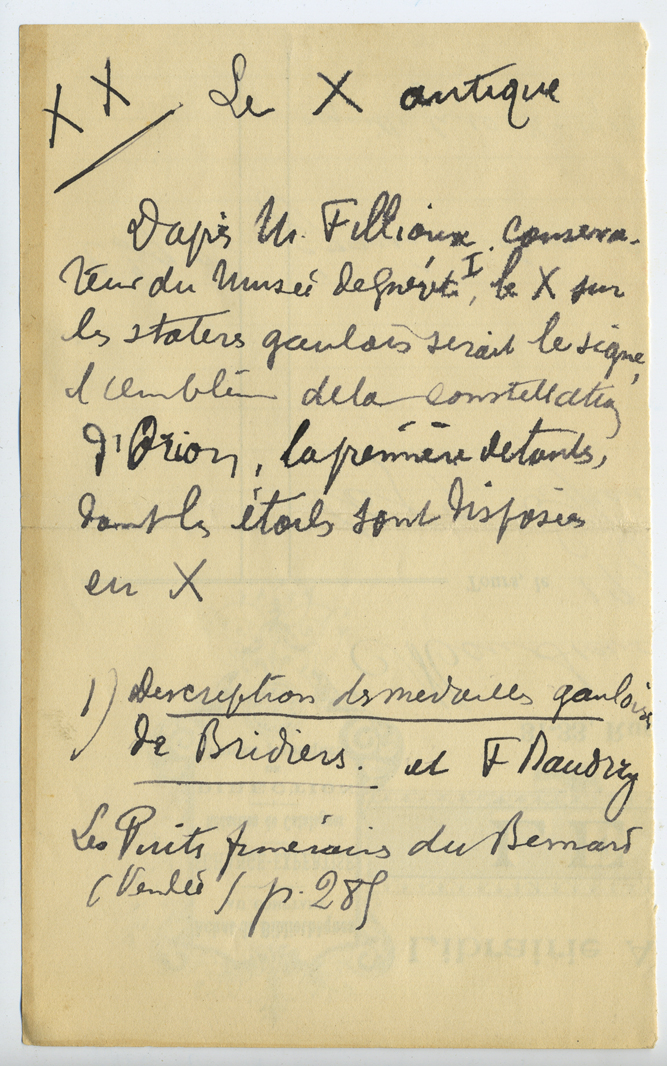 XX Le X antique
D'après M. Fillioux, conserva-
teur du Musée de Guéret I, le X sur
les statères gaulois serait le signe,
l'emblème de la constellation
d'Orion, la première de toutes,
dont les étoiles sont disposées
en X
1) Description des médailles gauloises
de Bridiers. et F Baudry
Les Puits funéraires du Bernard
(Vendée) p. 285